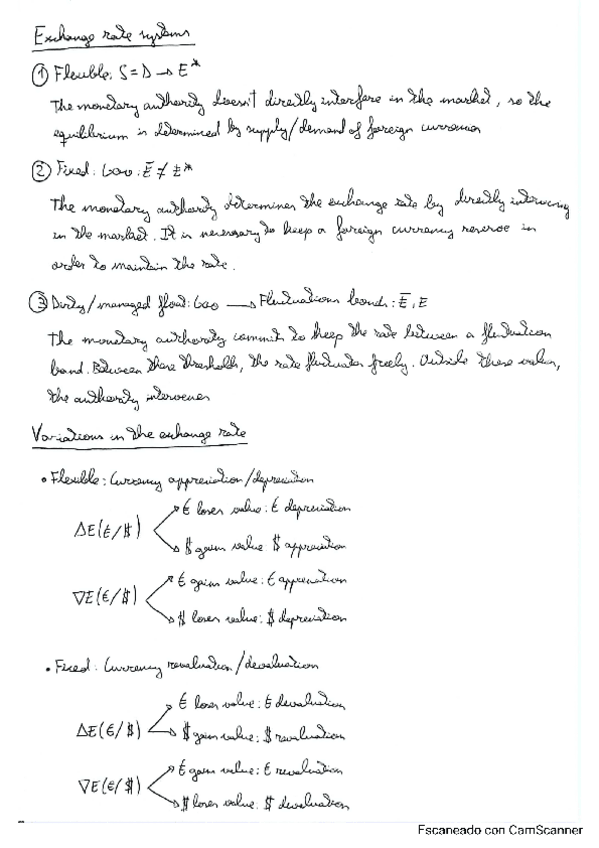 Exchange rate systems
① Flexible: S=D → E*
The monetary authority doesn't directly interfere in the market, so the
equilibrium is determined by supply/demand of foreign currencies
② Fixed: Gov: Ē ≠ E*
The monetary authority determines the exchange rate by directly intervening
in the market. It is necessary to keep a foreign currency reserve in
order to maintain the rate.
③ Dirty/managed float: Gov → Fluctuations bands: Ē, E
The monetary authority commits to keep the rate between a fluctuation
band. Between these thresholds, the rate fluctuates freely. Outside these values,
the authority intervenes
Variations in the exchange rate
• Flexible: Currency appreciation/depreciation
€ loses value: € depreciation
ΔE(€/$)
$ gains value $ appreciation
€ gains value: € appreciation
∇E(€/$)
$ loses value: $ depreciation
• Fixed: Currency revaluation/devaluation
€ loses value: € devaluation
ΔE(€/$)
$ gains value: $ revaluation
€ gains value: € revaluation
∇E(€/$)
$ loses value: $ devaluation
Escaneado con CamScanner